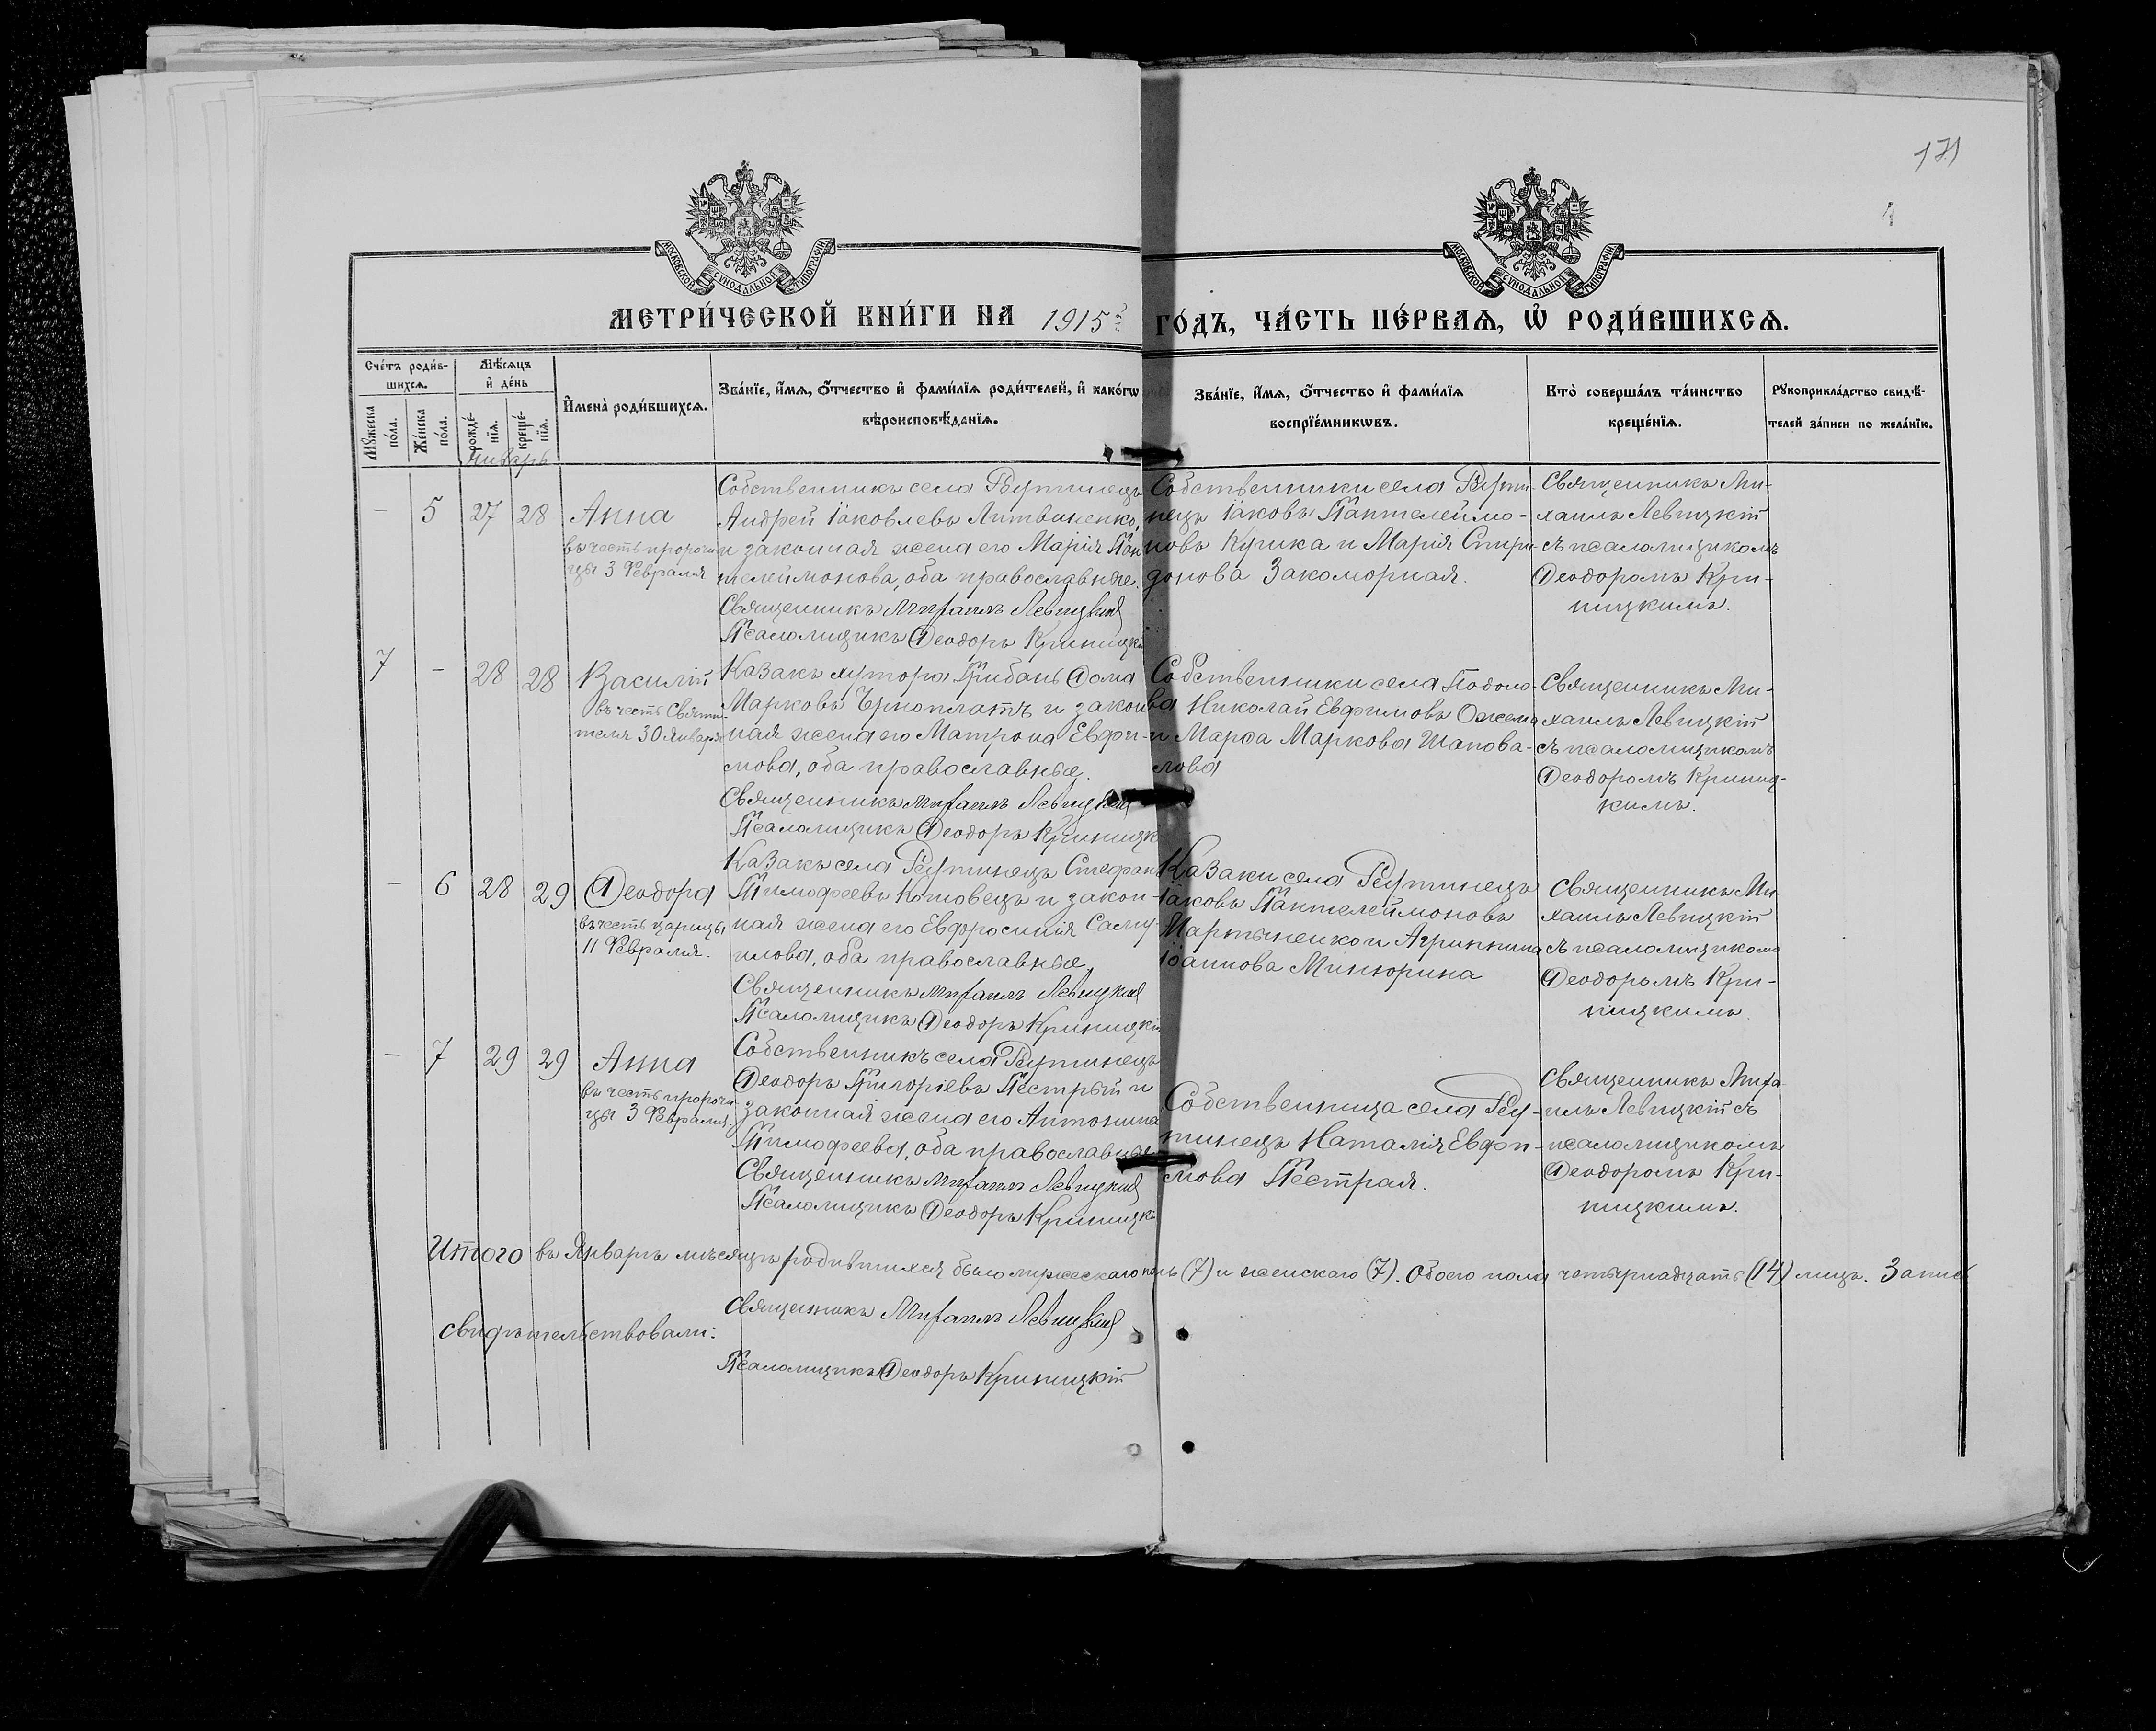 171
1
МОСКОВСКОЙ СѴНОДАЛЬНОЙ ТИПОГРАФІИ
МОСКОВСКОЙ СѴНОДАЛЬНОЙ ТИПОГРАФІИ
МЕТРИ́ЧЕСКОЙ КНИ́ГИ НА 1915 ГО́ДЪ, ЧА́СТЬ ПЕ́РВАѦ, Ѡ҆ РОДИ́ВШИХСѦ.
Сче́тъ роди́в-
шихсѧ.
Мꙋ́жеска по́ла.
Же́нска по́ла.
Мѣ́сѧцъ
и҆ де́нь
рожде́-
нїѧ.
креще́-
нїѧ.
И҆мена̀ роди́вшихсѧ.
Зва́нїе, и҆́мѧ, ѻ҆́тчество и҆ фами́лїѧ роди́телей, и҆ како́гѡ
вѣроисповѣ́данїѧ.
Зва́нїе, и҆́мѧ, ѻ҆́тчество и҆ фами́лїѧ
воспрїе́мникѡвъ.
Кто̀ соверша́лъ та́инство
креще́нїѧ.
Рꙋкоприкла́дство свидѣ́-
телей за́писи по жела́нїю.
Январь
- 5 27 28 Анна
въ честь пророчи-
цы 3 Февраля
Собственникъ села Реутинецъ
Андрей Іаковлевъ Литвиненко,
и законная жена его Марія Пан
телеймонова, оба православные.
Священникъ Михаилъ Левицкій
Псаломщикъ Ѳеодоръ Криницкі
Собственники села Реути-
нецъ Іаковъ Пантелеймо-
новъ Кулика и Марія Спири-
донова Закоморная.
Священникъ Ми-
хаилъ Левицкій
съ псаломщикомъ
Ѳеодоромъ Кри-
ницкимъ.
7 - 28 28 Василій
въ честь Святи-
теля 30 Января
Казакъ хутора Грибань Ѳома
Марковъ Чрноплатъ и закон
ная жена его Матрона Евфи-
мова, оба православные.
Священникъ Михаилъ Левицкій
Псаломщикъ Ѳеодоръ Криницк
Собственники села Подоло-
ва Николай Евфимовъ Ожема
и Марѳа Маркова Шапова-
лова
Священникъ Ми-
хаилъ Левицкій
съ псаломщикомъ
Ѳеодоромъ Криниц-
кимъ.
- 6 28 29 Ѳеодора
въ честь царицы
11 Февраля.
Казакъ села Реутинецъ Стефан
Тимофеевъ Котовецъ и закон-
ная жена его Евфросинія Саму-
илова, оба православные.
Священникъ Михаилъ Левицкій
Псаломщикъ Ѳеодоръ Криницкі
Казаки села Реутинецъ
Іаковъ Пантелеймоновъ
Мартыненко и Агриппина
Іоаннова Минюрина
Священникъ Ми-
хаилъ Левицкій
съ псаломщикомъ
Ѳеодоромъ Кри-
ницкимъ.
- 7 29 29 Анна
въ честь пророчи-
цы 3 Февраля.
Собственникъ села Реутинецъ
Ѳеодоръ Григоріевъ Пестрый и
законная жена его Антонина
Тимофеева, оба православные
Священникъ Михаилъ Левицкій
Псаломщикъ Ѳеодоръ Криницкі
Собственница села Реу-
тинецъ Наталія Евфи-
мова Пестрая.
Священникъ Миха
илъ Левицкій съ
псаломщикомъ
Ѳеодоромъ Кри-
ницкимъ.
Итого въ Январѣ мѣсяцѣ родившихся было мужескаго полъ (7) и женскаго (7). Обоего пола четырнадцать (14) лицъ. Запись
свидѣтельствовали: Священникъ Михаилъ Левицкій
Псаломщикъ Ѳеодоръ Криницкій